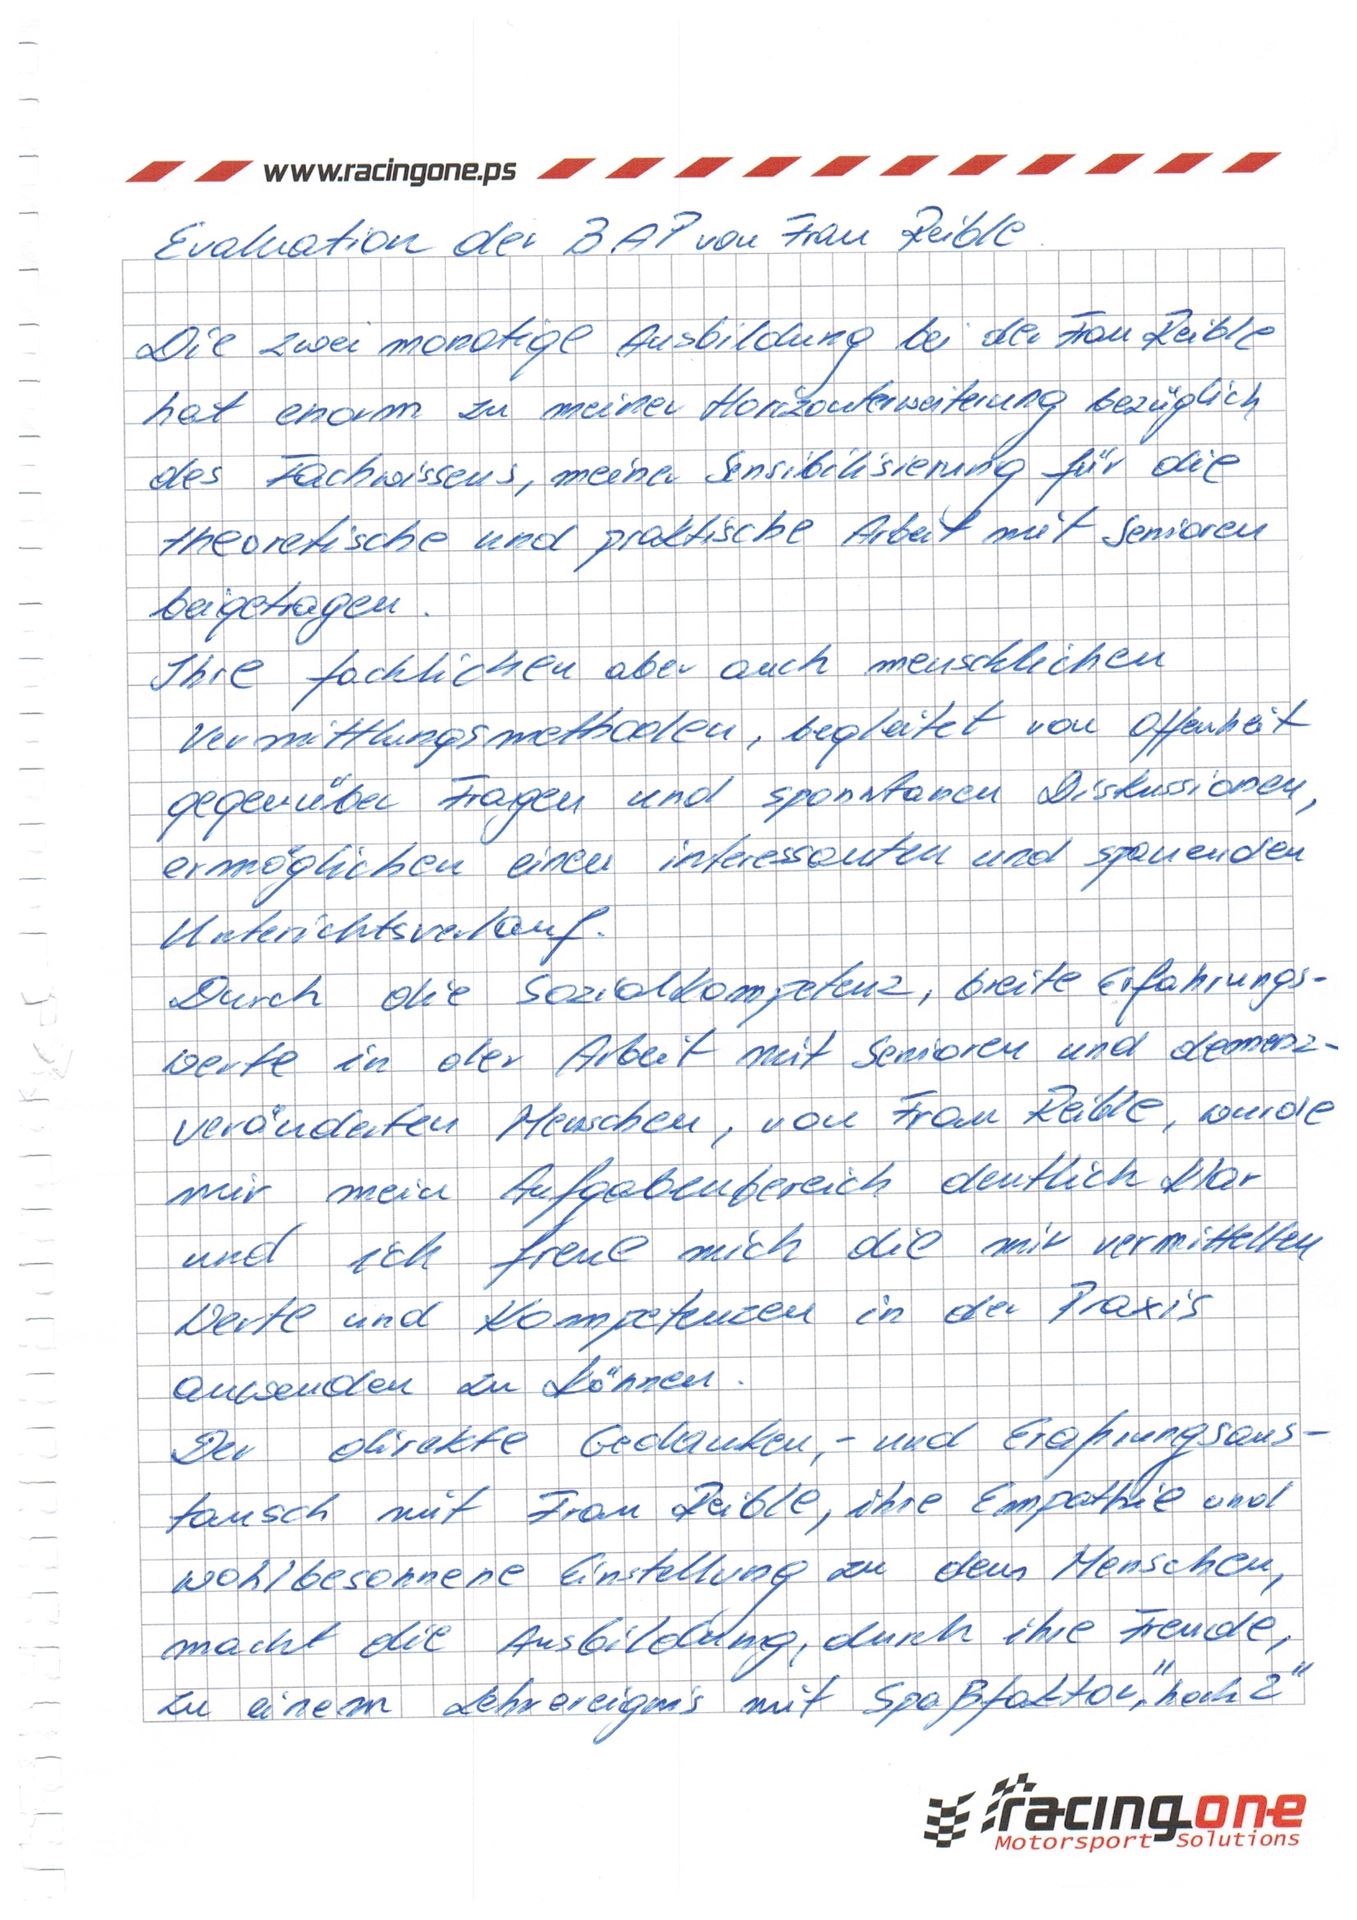 www.racingone.ps
Evaluation der BAP von Frau Reible
Die zwei monatige Ausbildung bei der Frau Reible
hat enorm zu meiner Horizonterweiterung bezüglich
des Fachwissens, meiner Sensibilisierung für die
theoretische und praktische Arbeit mit Senioren
beigetragen.
Ihre fachlichen aber auch menschlichen
Vermittlungsmethoden, begleitet von Offenheit
gegenüber Fragen und sponntanen Diskussionen,
ermöglichen einen interessanten und spanenden
Unterichtsverlauf.
Durch die Sozialkompetenz, breite Erfahrungs-
werte in der Arbeit mit Senioren und demenz-
veränderten Menschen, von Frau Reible, wurde
mir mein Aufgabenbereich deutlich klar
und ich freue mich die mir vermittelten
Werte und Kompetenzen in der Praxis
anwenden zu können.
Der direkte Gedanken,- und Erahrungsaus-
tausch mit Frau Reible, ihre Empathie und
wohlbesonnene Einstellung zu dem Menschen,
macht die Ausbildung, durch ihre Freude,
zu einem Lehrereignis mit Spaßfaktor „hoch 2"
racing one
Motorsport Solutions